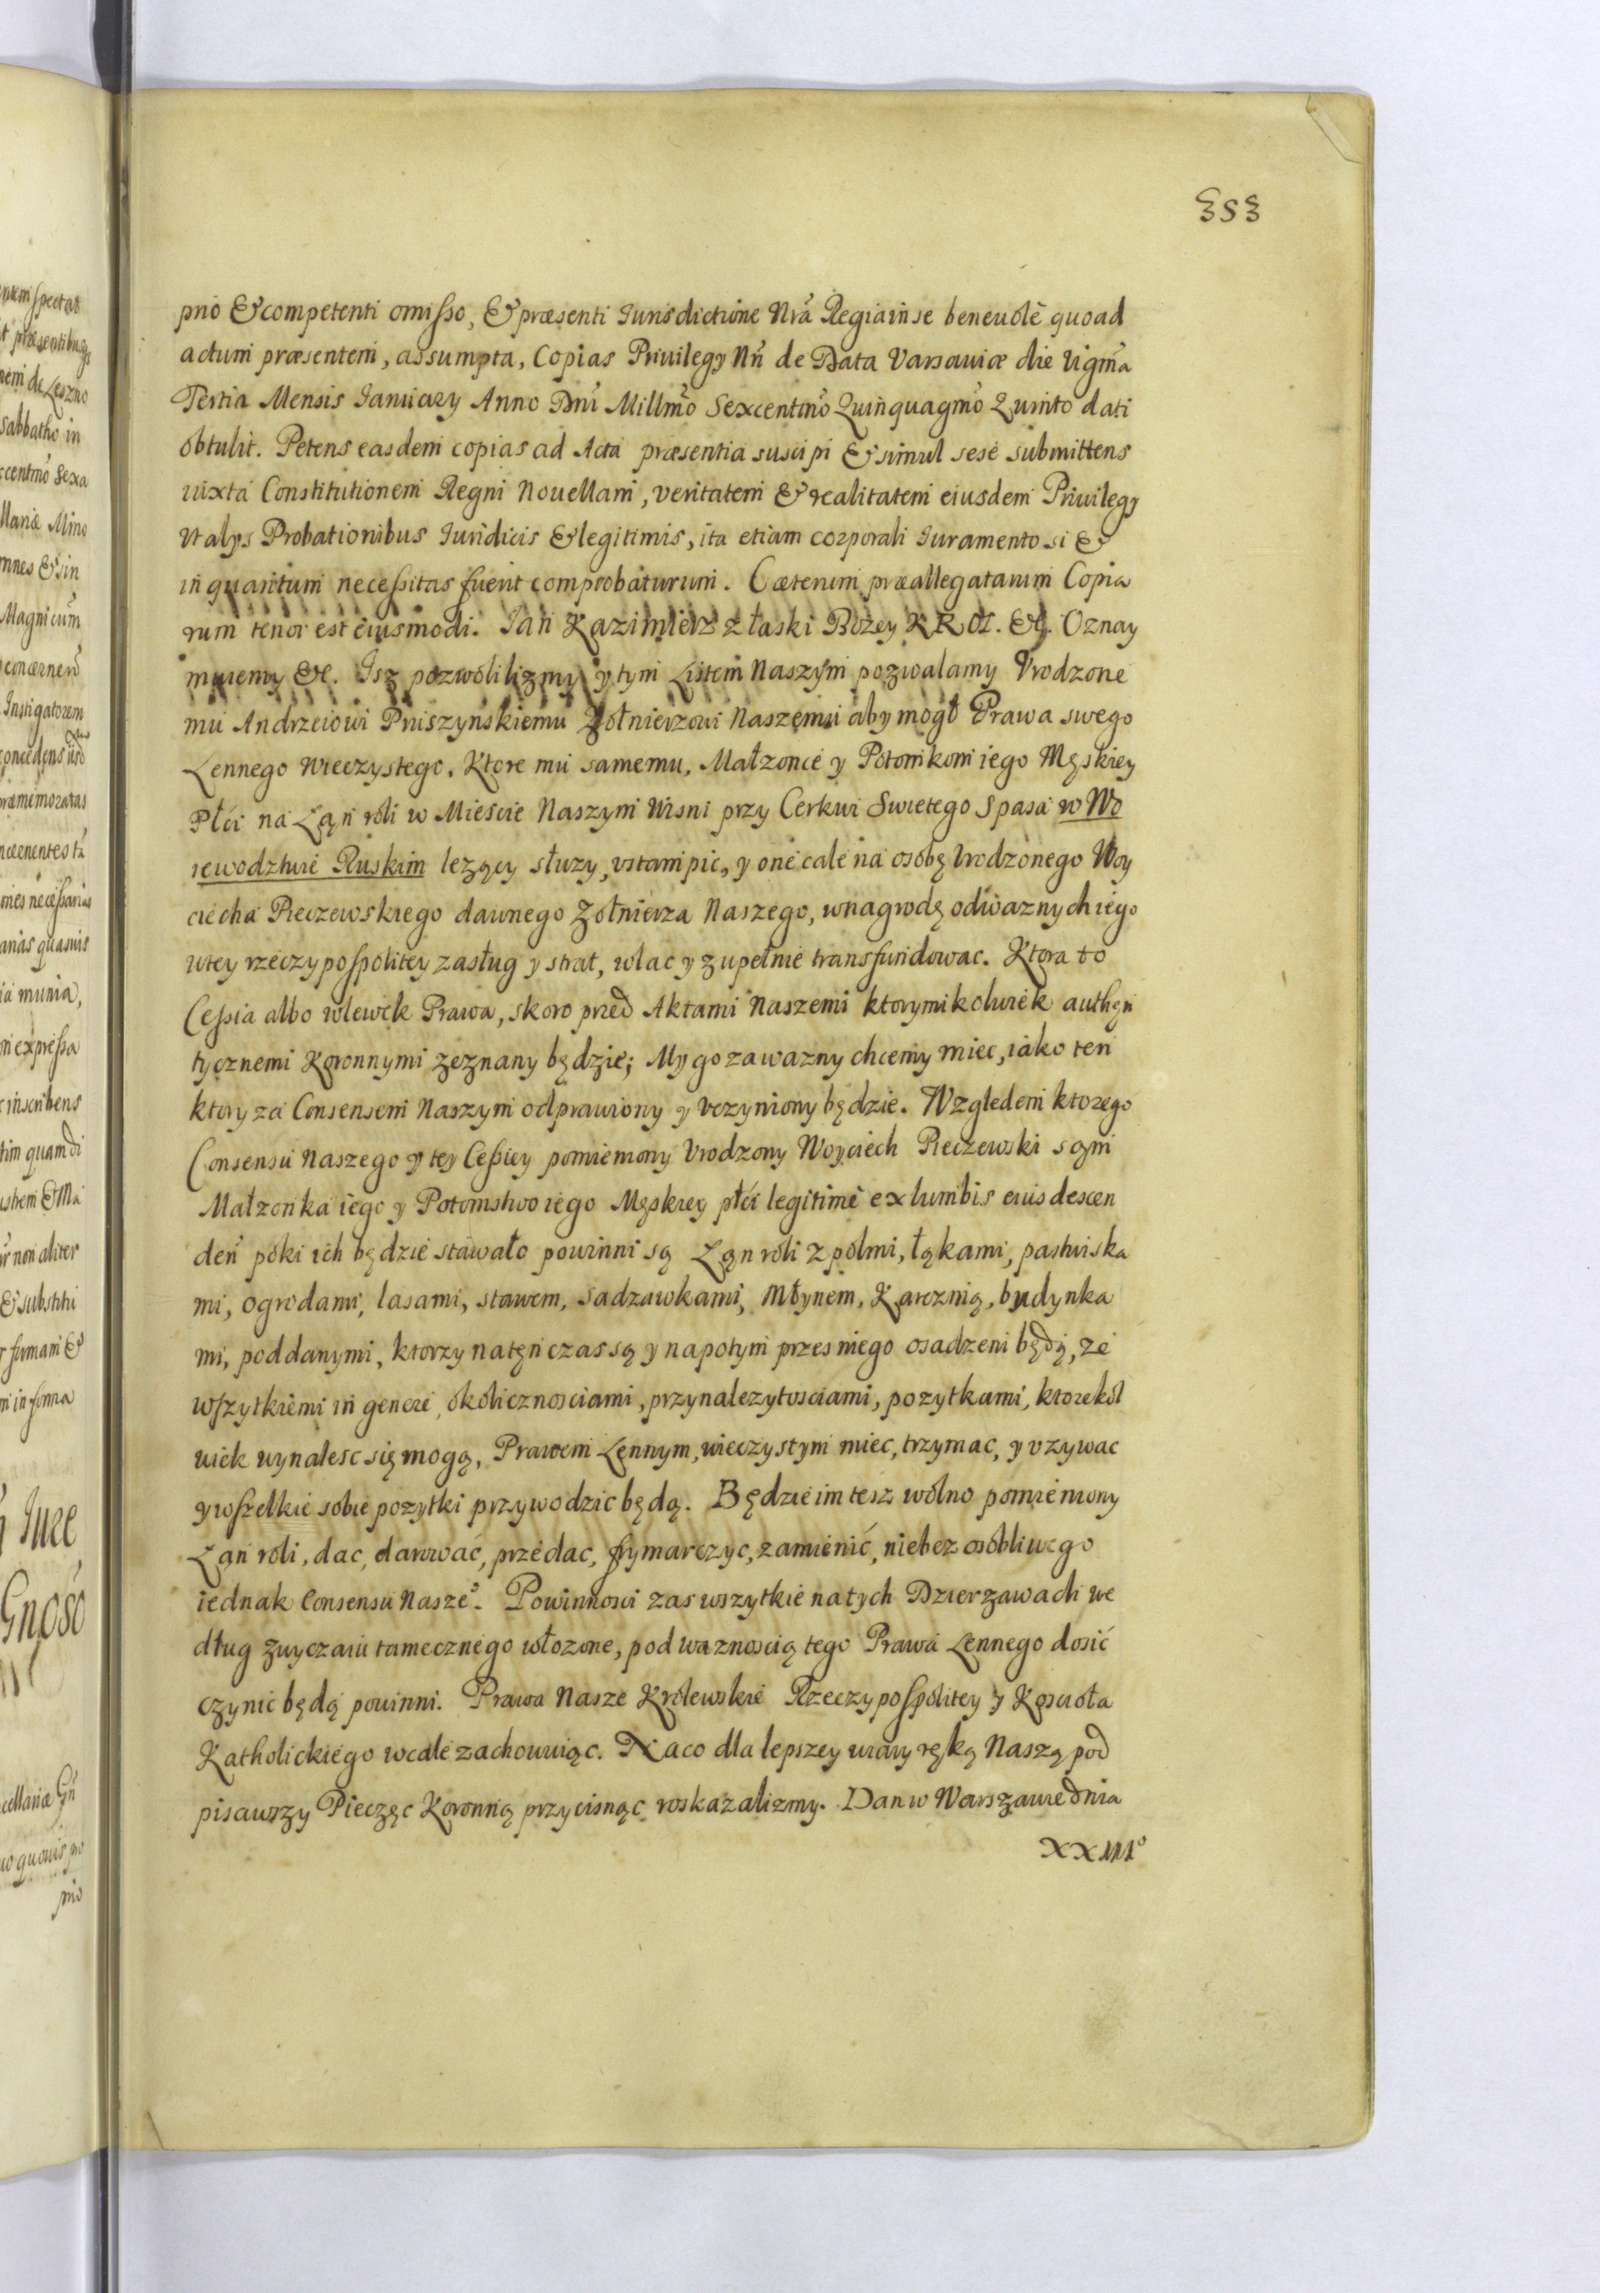 353
prio & competenti omisso, & præsenti Jurisdictione Nrã Regia in se beneuolè quoad
actum præsentem, assumpta, Copias Priuilegy Nri de Data Varsauiæ die Vigma
Tertia Mensis Januarÿ Anno Dni Millmo Sexcentmo Quinquagmo Quinto dati
obtulit. Petens easdem copias ad Acta præsentia suscipi & simul sese submittens
iuxta Constitutionem Regni Nouellam, veritatem & realitatem eiusdem Priuilegy
Vt alys Probationibus Juridicis & legitimis, ita etiam corporali Juramento si &
in quantum necessitas fuerit comprobaturum. Cæterum præallegatarum Copia
rum tenor est eiusmodi. Jan Kazimierz z łaski Bozey KRol. &c. Oznay
muiemy &c. Jsz pozwolilizmy y tym Listem Naszym pozwalamy Vrodzone
mu Andrzeiowi Pruszynskiemu Zołnierzowi Naszemu aby mogł Prawa swego
Lennego wieczystego, Ktore mu samemu, Małzonce y Potomkom iego Męskiey
Płci na Łąn roli w Miescie Naszym Wisni przy Cerkwi Swietego Spasa w Wo
iewodztwie Ruskim lezący słuzy, vstąmpic, y one cale na osobę Vrodzonego Woy
ciecha Pieczewskiego dawnego Zołnierza Naszego, wnagrodę odwaznych iego
wtey rzeczypospolitey zasług y strat, wlac y zupełnie transfundowac. Ktora to
Cessia albo wlewek Prawa, skoro przed Aktami Naszemi ktorymikolwiek authęn
tycznemi Koronnymi zeznany będzie; My go zawazny chcemy miec, iako ten
ktory za Consensem Naszym odprawiony y vczyniony będzie. Względem ktorego
Consensu Naszego y tey Cessiey pomieniony Vrodzony Woyciech Pieczewski sąm
Małzonka iego y Potomstwo iego Męskiey płci legitimè ex lumbis eius descen
den poki ich będzie stawało powinni są Łąn roli z polmi, łąkami, pastwiska
mi, ogrodami, lasami, stawem, sadzawkami, Młynem, Karczmą, budynka
mi, poddanymi, ktorzy natęnczas są y napotym przes niego osadzeni będą, ze
wszytkiemi in genere, okolicznosciami, przynalezytosciami, pozytkami, ktorekol
wiek wynalesc się mogą, Prawem Lennym, wieczystym miec, trzymac, y vzywac
y wszelkie sobie pozytki przywodzic będą. Będzie im tesz wolno pomieniony
Łąn roli, dac, darować, przedac, frymarczyc, zamienić, niebez osobliwego
iednak Consensu Nasze°. Powinnosci zas wszytkie na tych Dzierzawach we
dług zwyczaiu tamecznego włozone, pod waznoscią tego Prawa Lennego dosić
czynic będą powinni. Prawa Nasze Krolewskie Rzeczypospolitey y Koscioła
Katholickiego wcale zachowuiąc. Naco dla lepszey wiary ręką Naszą pod
pisawszy Pieczęc Koronną przycisnąc roskazalizmy. Dan w Warszawie dnia
XXIII°